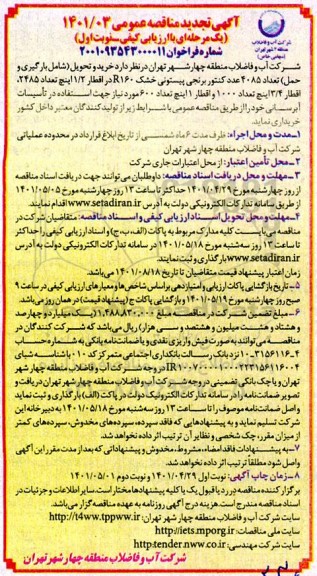 آگهی تجدید مناقصه عمومی ۱۴۰۱/۰۳
(یک مرحله‌ای با ارزیابی کیفی-نوبت اول)
شماره فراخوان ۲۰۰۱۰۹۳۵۴۳۰۰۰۰۱۱
شرکت آب و فاضلاب
منطقه ۴ شهر تهران
(سهامی خاص)
شرکت آب و فاضلاب منطقه چهار شهر تهران در نظر دارد خرید و تحویل (شامل بارگیری و
حمل) تعداد ۴۰۸۵ عدد کنتور برنجی پیستونی خشک R۱۶۰ در اقطار ۱/۲ اینچ تعداد ۲۴۸۵،
اقطار ۳/۴ اینچ تعداد ۱۰۰۰ و اقطار ۱ اینچ تعداد ۶۰۰ مورد نیاز جهت استفاده در تأسیسات
آبرسانی خود را از طریق مناقصه عمومی با شرایط زیر از تولیدکنندگان معتبر داخل کشور
خریداری نماید.
۱-مدت و محل اجراء: ظرف مدت ۶ ماه شمسی از تاریخ ابلاغ قرارداد در محدوده عملیاتی
شرکت آب و فاضلاب منطقه چهار شهر تهران
۲-محل تأمین اعتبار: از محل اعتبارات جاری شرکت
۳-مهلت و محل دریافت اسناد مناقصه: داوطلبان می‌توانند جهت دریافت اسناد مناقصه
از روز چهارشنبه مورخ ۱۴۰۱/۰۴/۲۹ حداکثر تا ساعت ۱۳ روز چهارشنبه مورخ ۱۴۰۱/۰۵/۰۵
از طریق سامانه تدارکات الکترونیکی دولت به آدرس www.setadiran.ir اقدام نمایند.
۴-مهلت و محل تحویل اسناد ارزیابی کیفی و اسناد مناقصه: متقاضیان شرکت در
مناقصه می‌بایست کلیه مدارک مربوط به پاکات (الف، ب، ج) و اسناد ارزیابی کیفی را حداکثر
تا ساعت ۱۳ روز سه‌شنبه مورخ ۱۴۰۱/۰۵/۱۸ در سامانه تدارکات الکترونیکی دولت به آدرس
www.setadiran.ir بارگذاری و ثبت نمایند.
زمان اعتبار پیشنهاد قیمت متقاضیان تا تاریخ ۱۴۰۱/۰۸/۱۸ می‌باشد.
۵-تاریخ بازگشایی پاکات ارزیابی و امتیازدهی براساس شاخص‌ها و معیارهای ارزیابی کیفی در ساعت ۹
صبح روز چهارشنبه مورخ ۱۴۰۱/۰۵/۱۹ و بازگشایی پاکات ج (پیشنهاد قیمت) در همان روز می‌باشد.
۶-مبلغ تضمین شرکت در مناقصه: مبلغ ۱.۴۸۸.۸۳۰.۰۰۰ (یک میلیارد و چهارصد
و هشتاد و هشت میلیون و هشتصد و سی هزار) ریال می‌باشد که شرکت کنندگان در
مناقصه می‌توانند به صورت فیش واریزی نقدی و یا ضمانت‌نامه بانکی به شماره حساب
تهران و یا چک بانکی تضمینی در وجه شرکت آب و فاضلاب منطقه چهار شهر تهران دریافت و
تصویر ضمانت‌نامه را در سامانه تدارکات الکترونیکی دولت در پاکت (الف) بارگذاری و ثبت نماید
و اصل ضمانت‌نامه موصوف را تا ساعت ۱۳ روز سه‌شنبه مورخ ۱۴۰۱/۰۵/۱۸ به دبیرخانه این
شرکت تسلیم نماید و به پیشنهادهایی که فاقد سپرده، سپرده‌های مخدوش، سپرده‌های کمتر
از میزان مقرر، چک شخصی و نظایر آن ترتیب اثر داده نخواهد شد.
۷-به پیشنهادات فاقد امضاء، مشروط، مخدوش و پیشنهاداتی که بعد از مدت مقرر این آگهی
واصل شود مطلقاً ترتیب اثر داده نخواهد شد.
۸-زمان چاپ آگهی: نوبت اول ۱۴۰۱/۰۴/۲۹ و نوبت دوم ۱۴۰۱/۰۵/۰۱
برگزار کننده مناقصه در رد یا قبول یک یا کلیه پیشنهادها مختار است، سایر اطلاعات و جزئیات در
اسناد مناقصه مندرج است. هزینه درج آگهی روزنامه به عهده مناقصه گزار می‌باشد.
سایت شرکت آب و فاضلاب منطقه چهار شهر تهران: http://t4ww.tppww.ir
سایت ملی مناقصات: http://iets.mporg.ir
سایت شرکت مهندسی: http:tender.nww.co.ir
شرکت آب و فاضلاب منطقه چهار شهر تهران